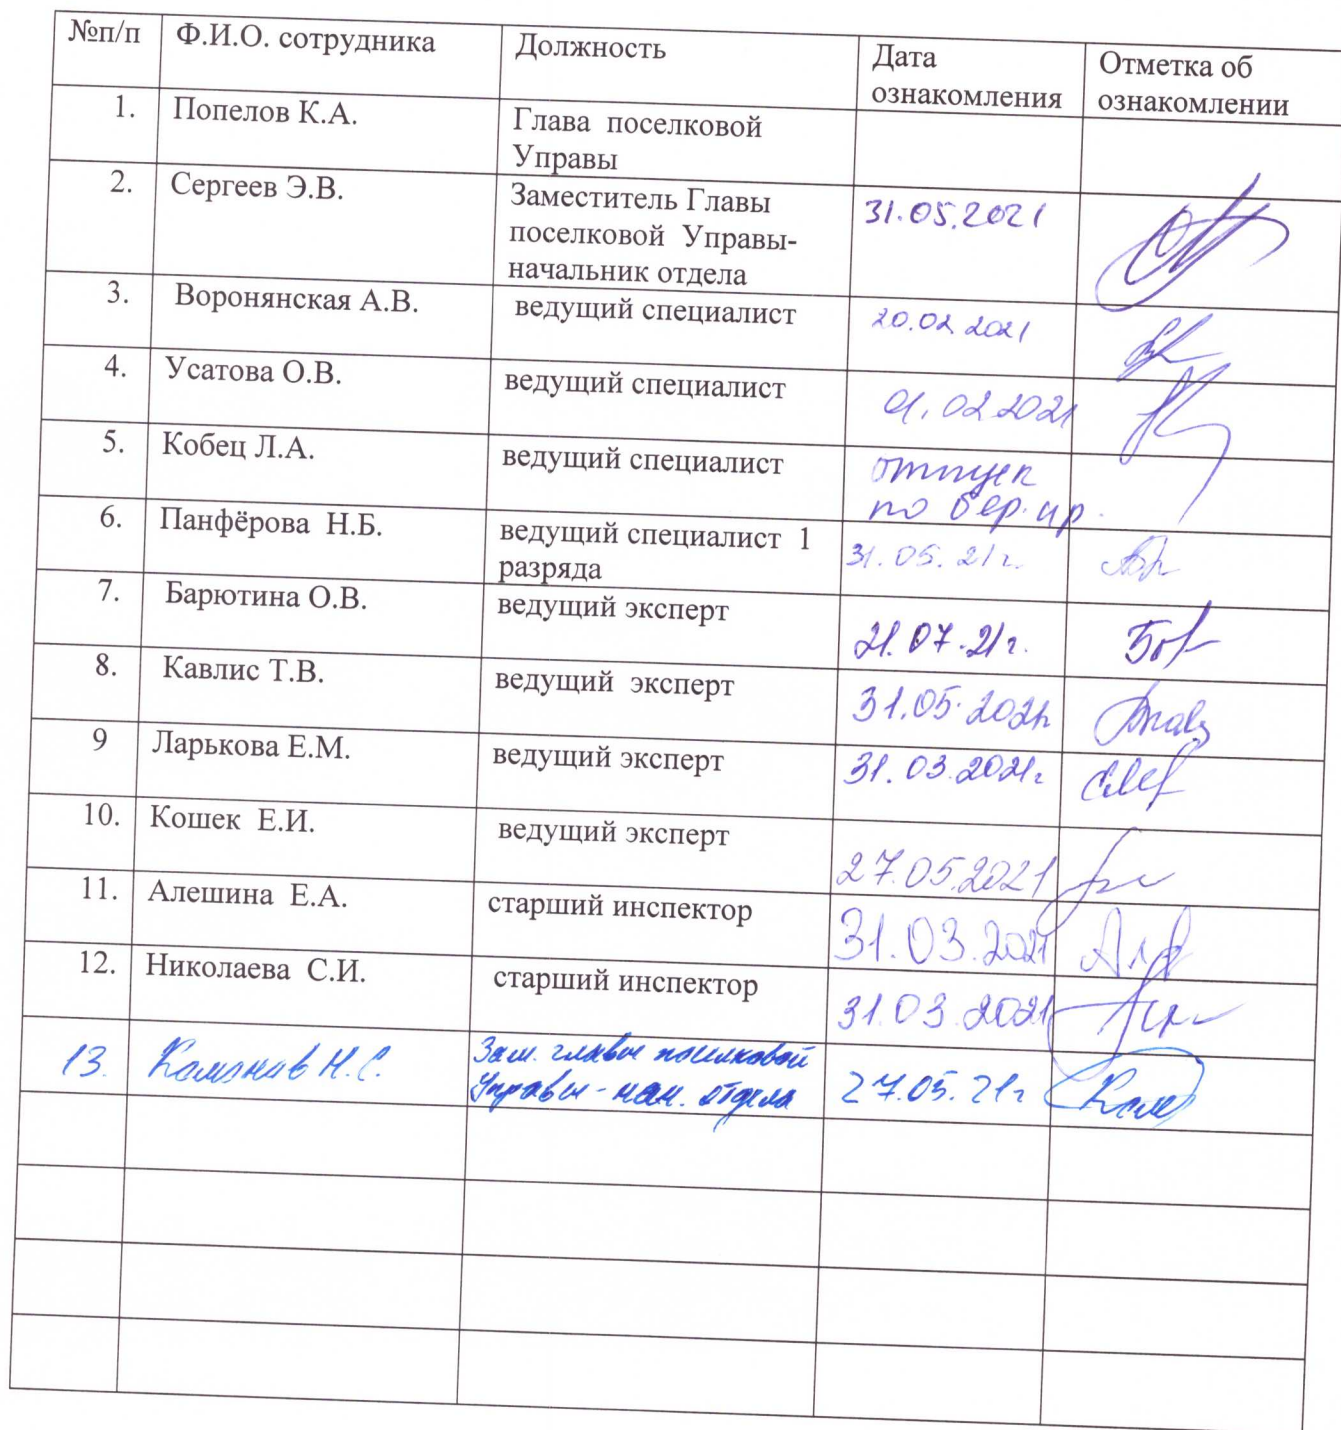 №п/п Ф.И.О. сотрудника Должность Дата ознакомления Отметка об ознакомлении
1. Попелов К.А. Глава поселковой Управы
2. Сергеев Э.В. Заместитель Главы поселковой Управы- начальник отдела 31.05.2021
3. Воронянская А.В. ведущий специалист 20.02 2021
4. Усатова О.В. ведущий специалист 01.02 2021
5. Кобец Л.А. ведущий специалист отпуск по бер. и р.
6. Панфёрова Н.Б. ведущий специалист 1 разряда 31.05.21г.
7. Барютина О.В. ведущий эксперт 21.07.21г.
8. Кавлис Т.В. ведущий эксперт 31.05.2021г
9 Ларькова Е.М. ведущий эксперт 31.03.2021г
10. Кошек Е.И. ведущий эксперт 27.05.2021
11. Алешина Е.А. старший инспектор 31.03.2021
12. Николаева С.И. старший инспектор 31.03.2021
13. Н.С. Зам. главы поселковой Управы - нач. отдела 27.05.21г